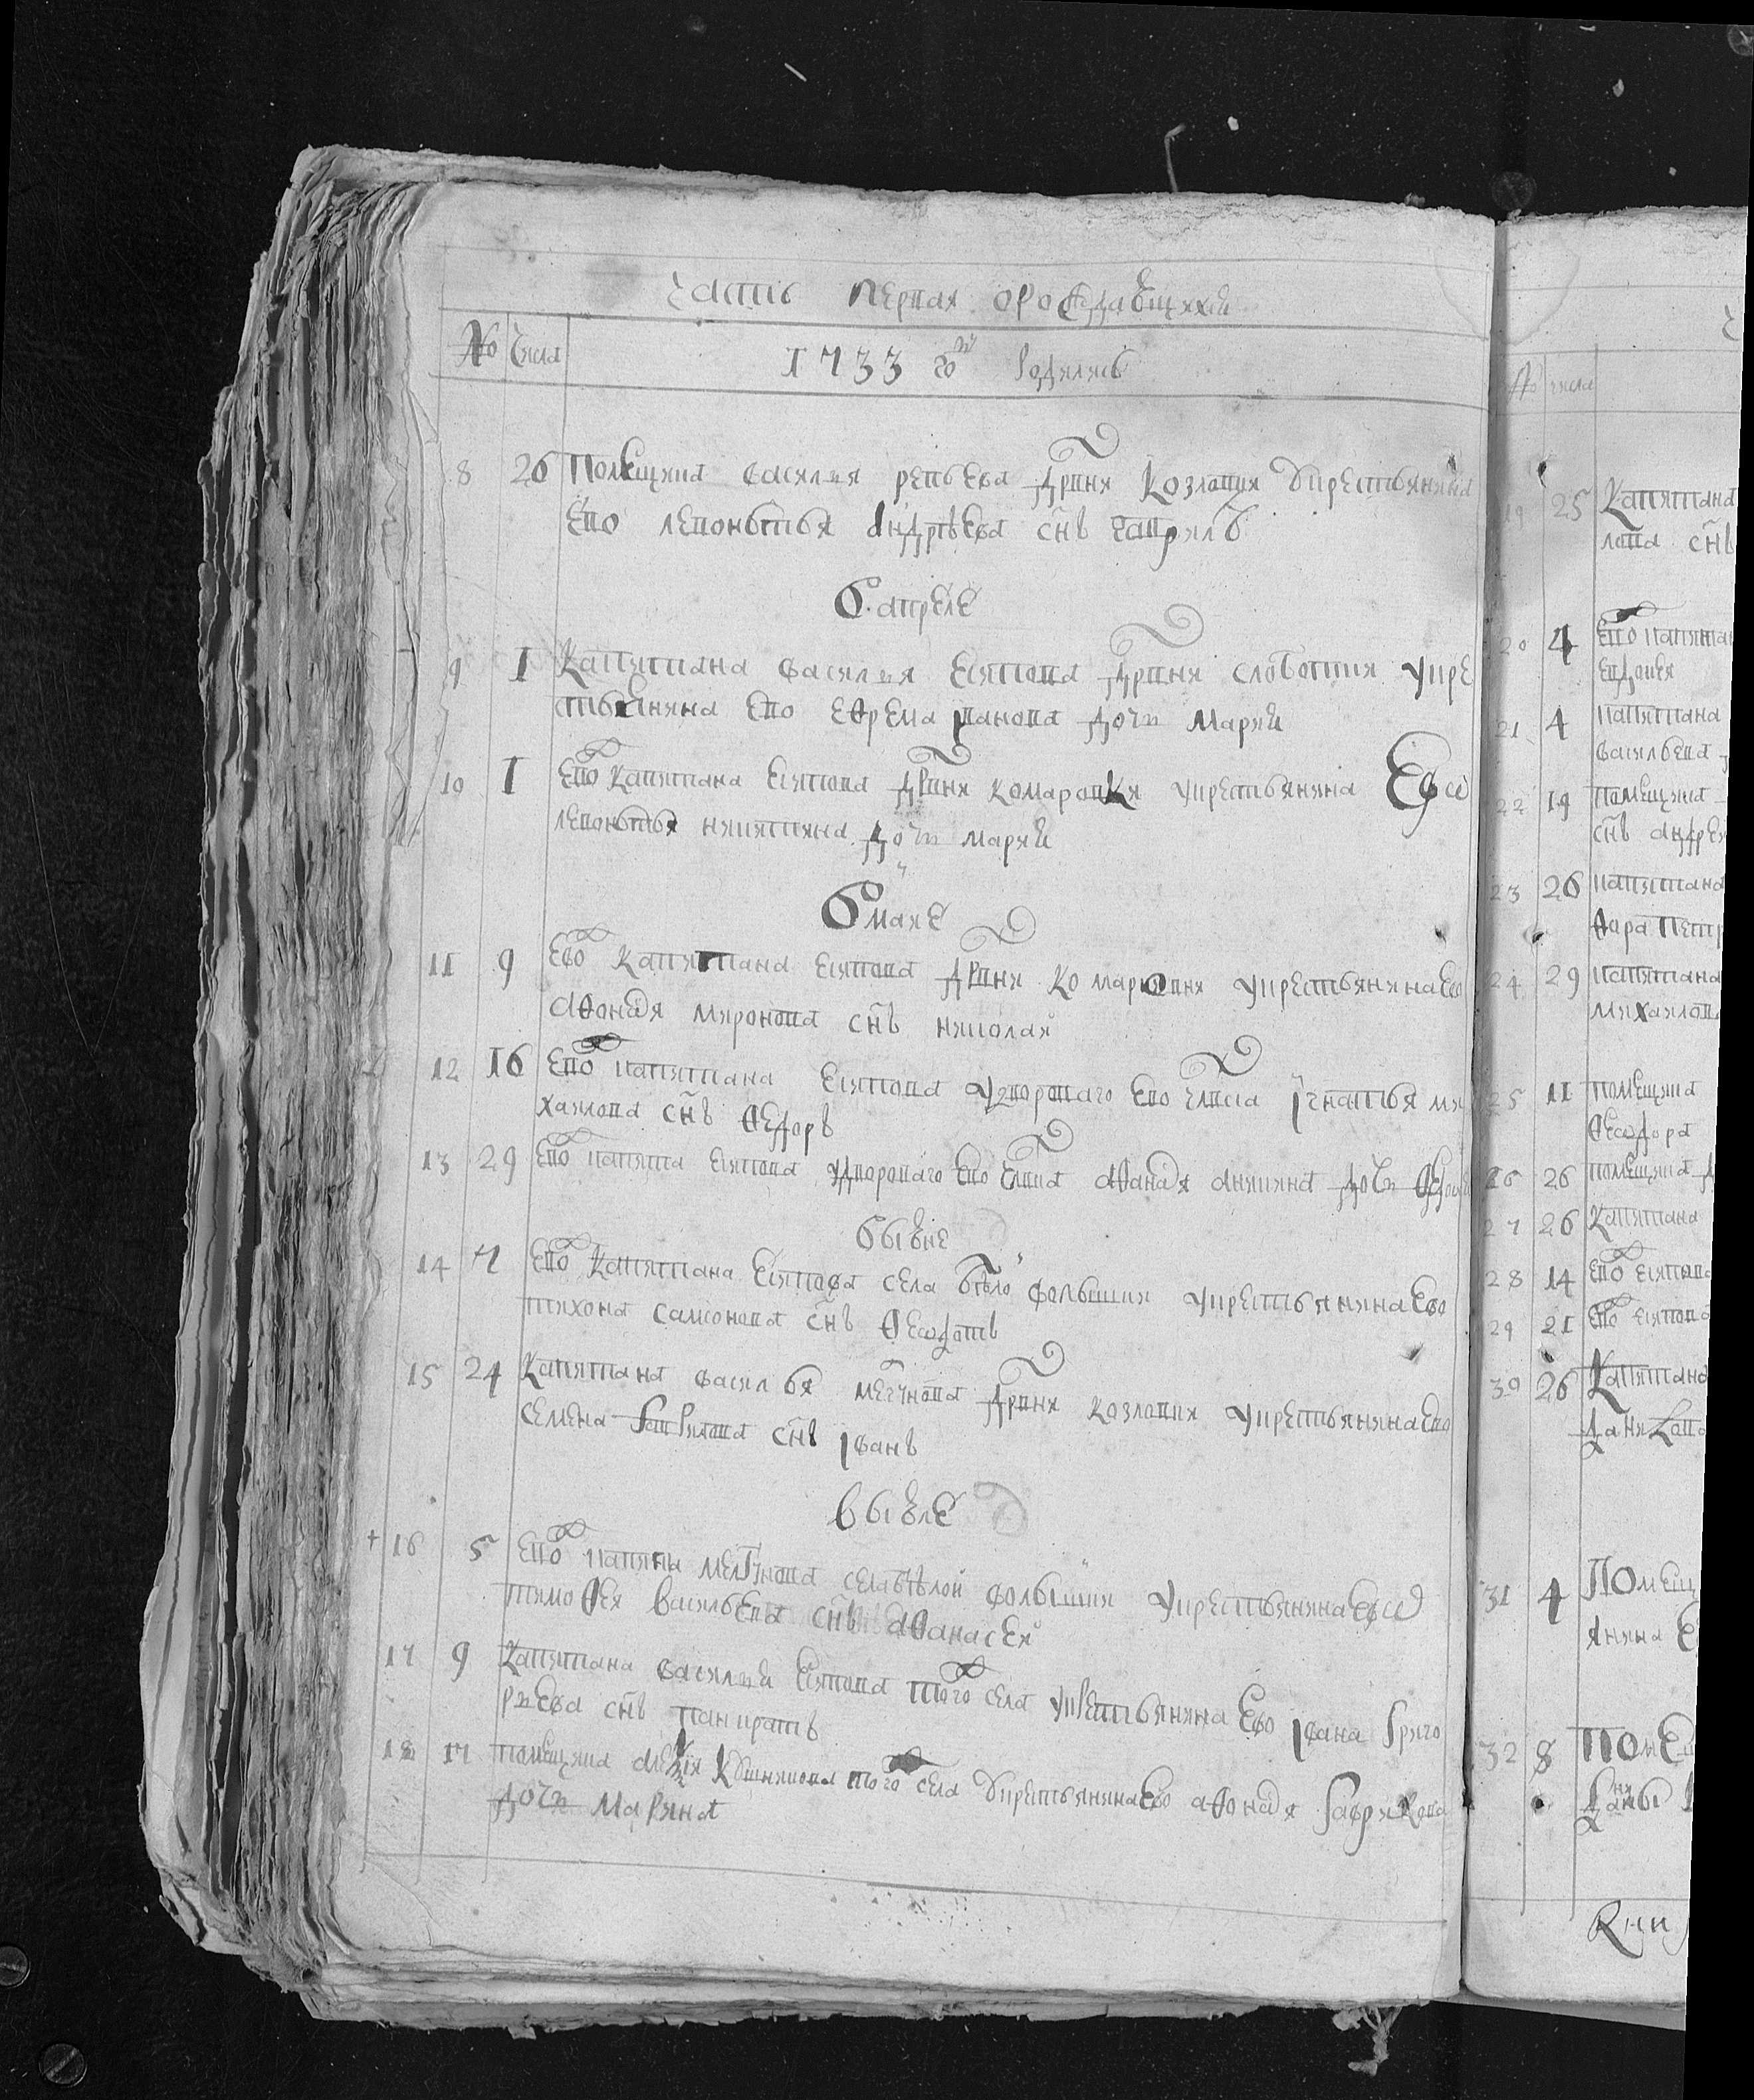 часть первая о рождающихся
№ Числа 1733 го Родились
8 26 Помещика василия репьева дрвни Козловки у крестьянина
Ево леонтья Андрѣева снъ гаврилъ
В апреле
9 1 Капитана василия Есипова дрвни слободки у кре
стьянина ево ефрема панова дочь Марии
10 1 Ево Капитана Есипова дрвни комаровки у крестьянина Ево
леонтья никитина дочь марии
В мае
11 9 Ево Капитана Есипова дрвни Комаровки у крестьянина Ево
Афонасья миронова снъ николай
12 16 Ево капитана Есипова у дворового ево члвка Игнатья ми
хаилова снъ Ѳедоръ
13 29 Ево капита Есипова у дворового ево афанасья аникина дочь
В ыюне
14 7 Ево Капитана Есипова села бѣло колышки у крестьянина Ево
тихона самсонова снъ Ѳеодотъ
15 24 Капитана василья мегчнова дрвни козловки у крестьянина ево
семена Гаврилова снъ Иванъ
В ыюле
16 5 Ево капитана мелгунова села бѣлой колышки у крестьянина Ево
тимоѳея васильева снъ аѳанасей
17 9 Капитана василия Есипова того села у крестьянина Ево Ивана Григо
рьева снъ панкратъ
18 17 помещика того села у крестьянина Ево аѳонася Гаврилова
дочь Марина
№ числа
19 25 Капитана
лова снъ
20 4 Ево капитан
21 4 капитана
васильева
22 19 помещика
снъ андрей
23 26 капитана
24 29 капитана
михаилов
25 11 помещика
Ѳеодора
26 26 помещика
27 26 Капитана
28 14 Ево есипова
29 21 Ево есипова
30 26 Капитана
данилова
31 4 Помещ
янина Е
32 8 Помещ